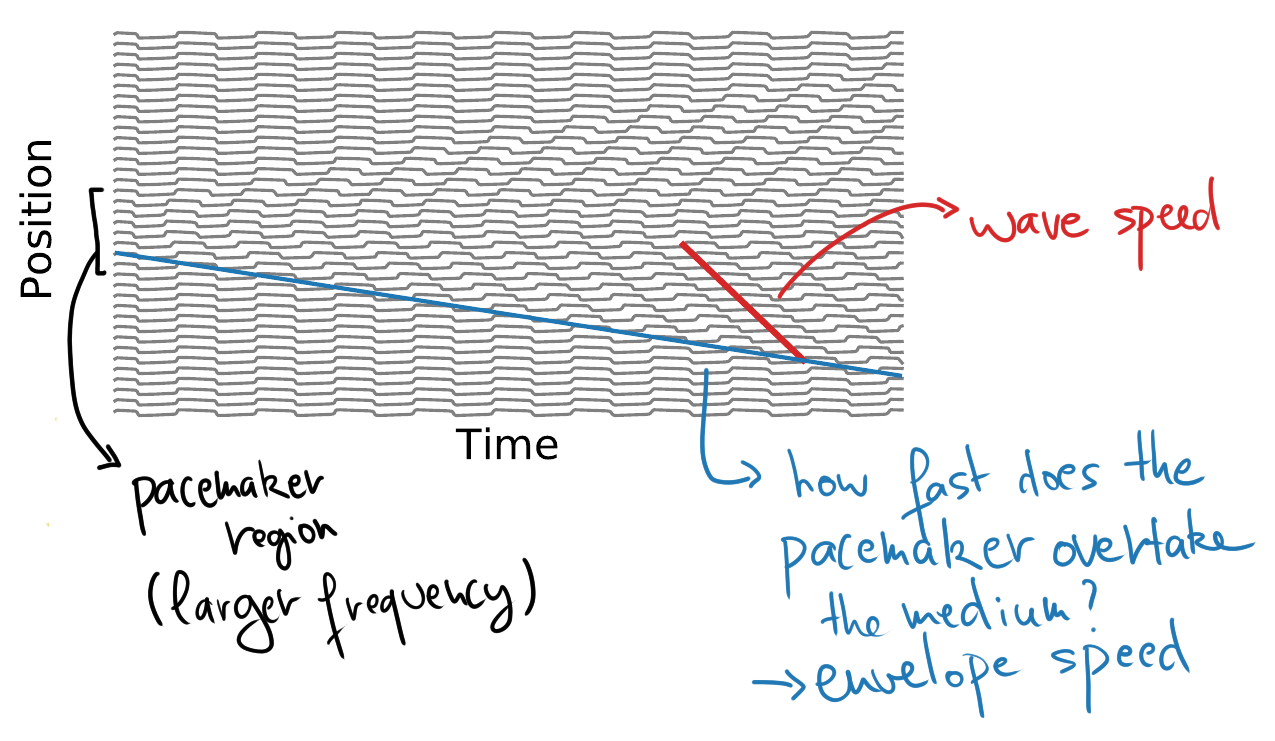 Position
Time
wave speed
pacemaker
region
(larger frequency)
how fast does the
pacemaker overtake
the medium?
→ envelope speed